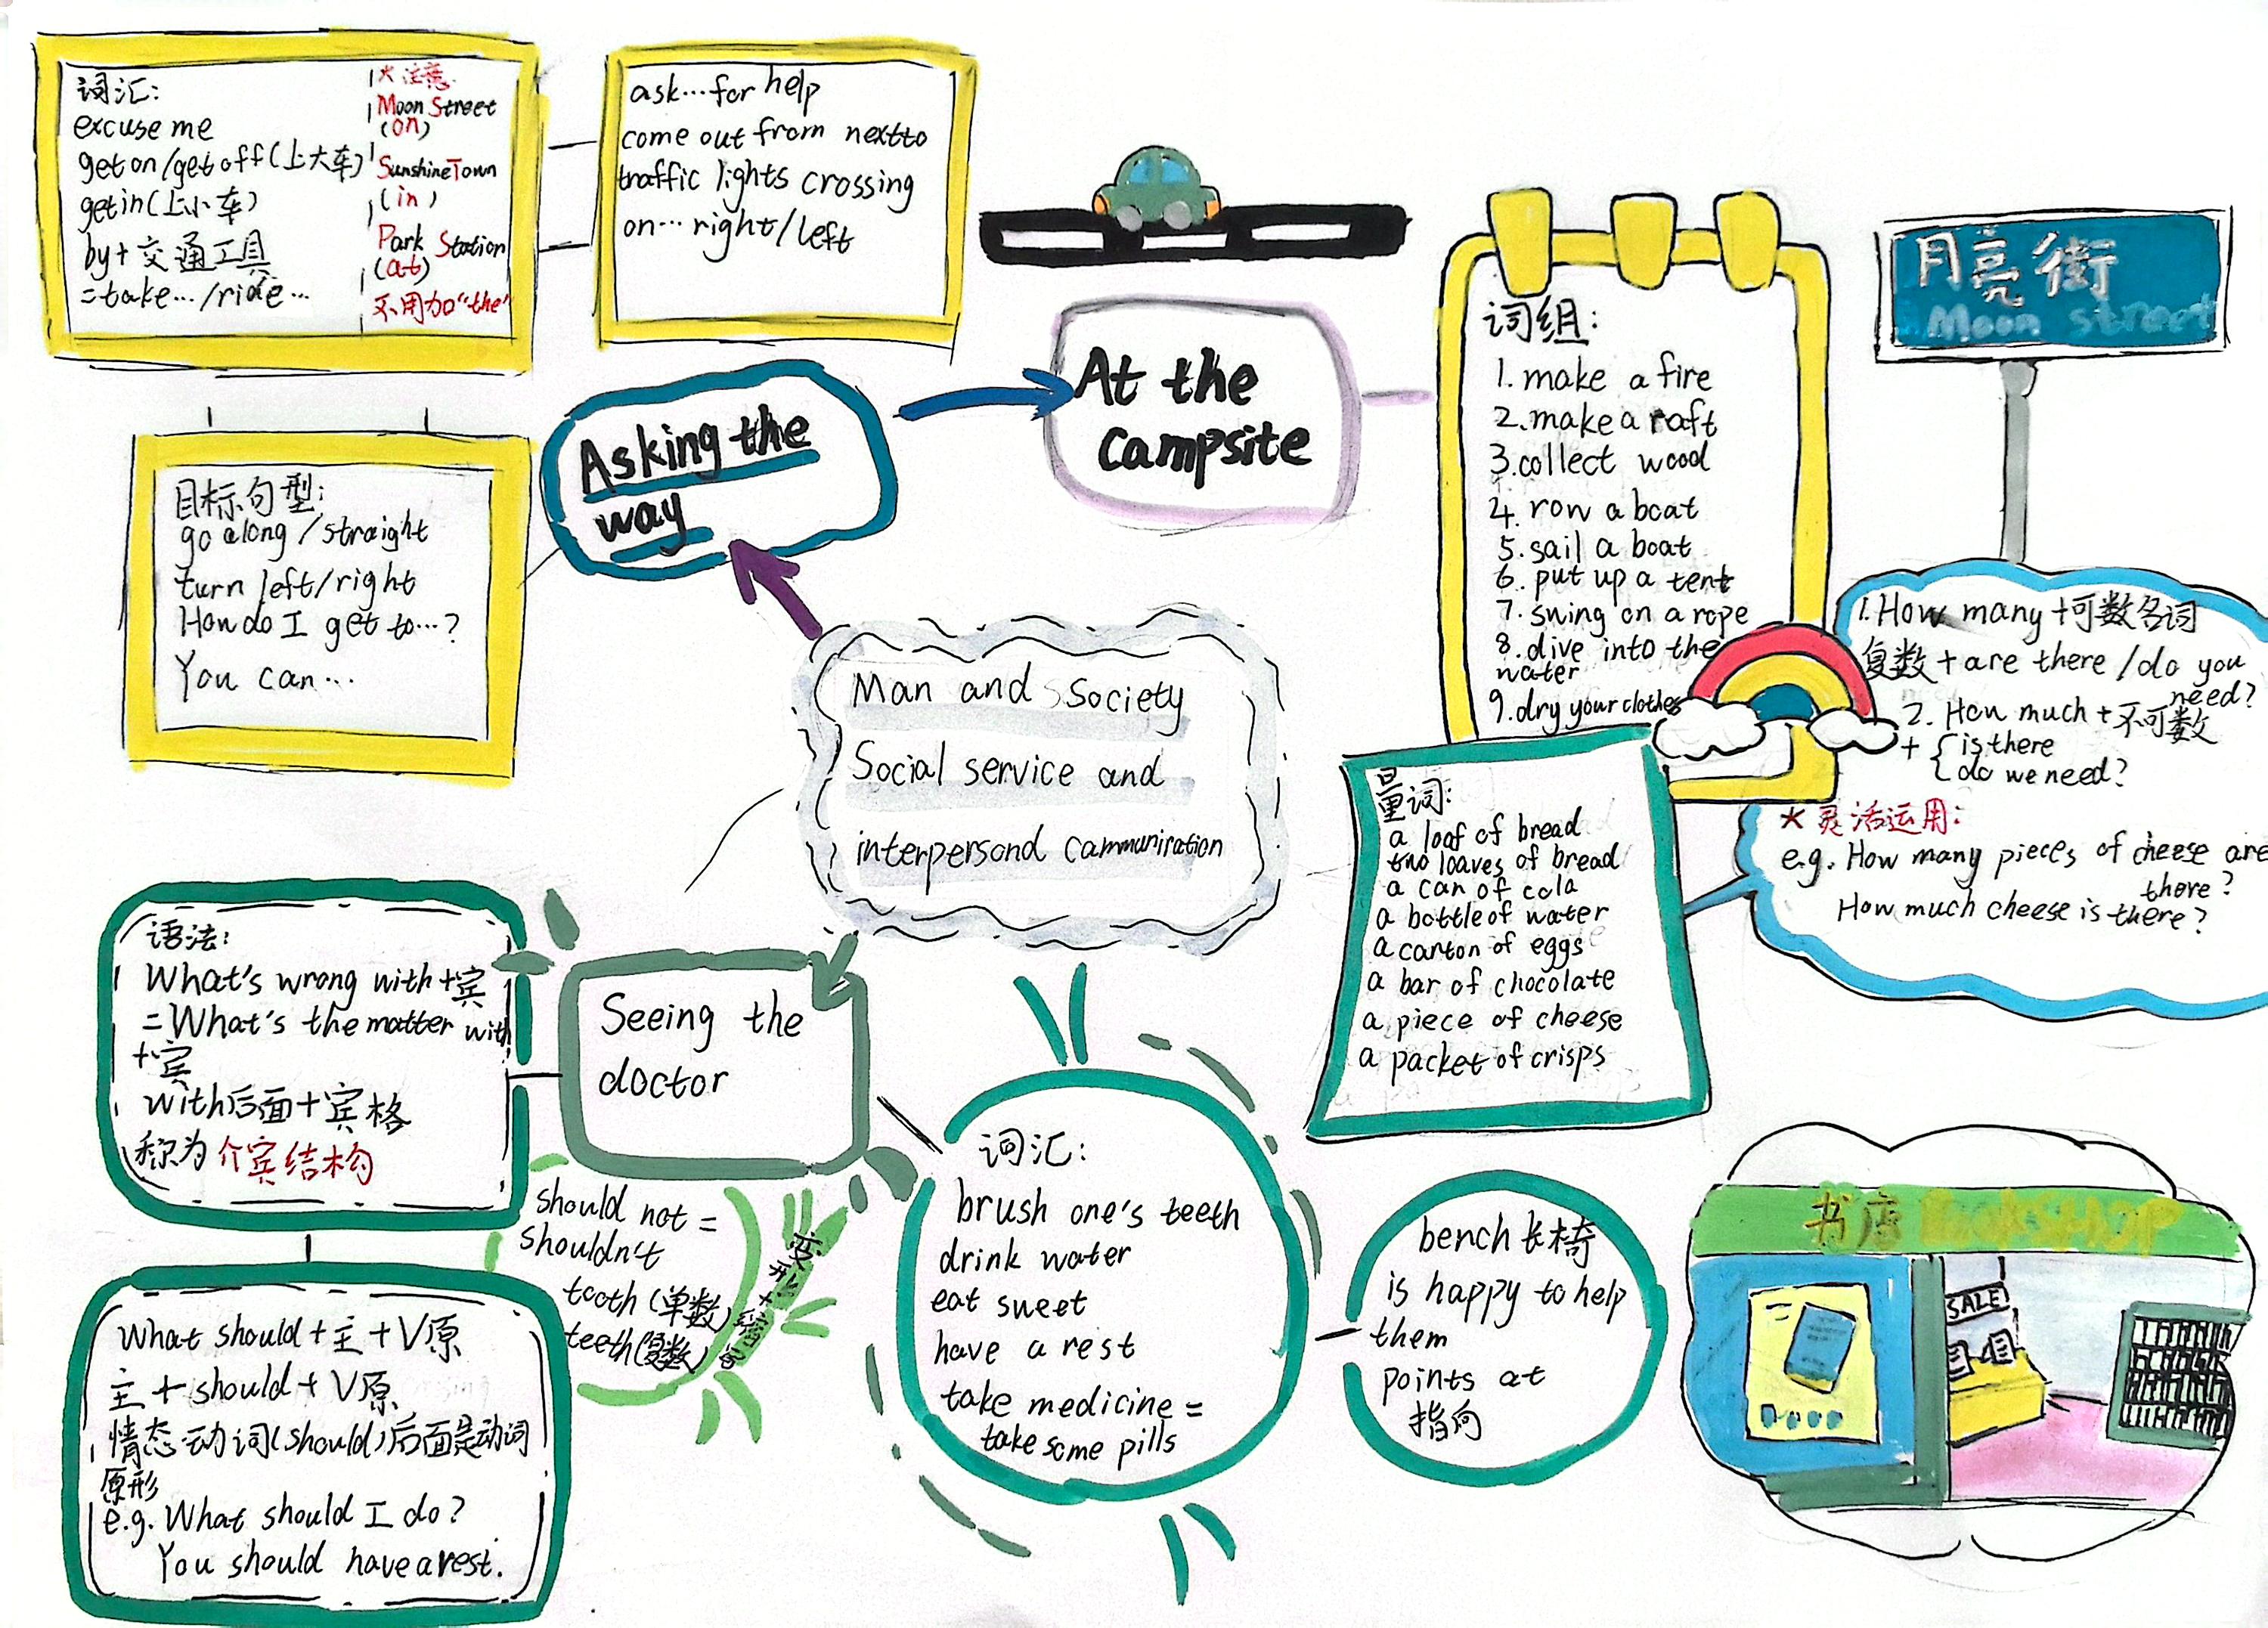 词汇:
excuse me
get on/get off(上大车)
get in(上小车)
by+交通工具
=take…/ride…
*注意
Moon Street
(on)
Sunshine Town
(in)
Park Station
(at)
不用加"the"
ask…for help
come out from next to
traffic lights crossing
on… right/left
目标句型:
go along/straight
turn left/right
How do I get to…?
You can…
Asking the
way
At the
campsite
词组:
1. make a fire
2. make a raft
3. collect wood
4. row a boat
5. sail a boat
6. put up a tent
7. swing on a rope
8. dive into the
water
9. dry your clothes
月亮街
Moon street
1. How many +可数名词
复数 + are there /do you
need?
2. How much + 不可数
+ { is there
do we need?
* 灵活运用:
e.g. How many pieces of cheese are
there?
How much cheese is there?
量词:
a loaf of bread
two loaves of bread
a can of cola
a bottle of water
a carton of eggs
a bar of chocolate
a piece of cheese
a packet of crisps
Man and Society
Social service and
interpersond cammuniration
Seeing the
doctor
语法:
What's wrong with +宾
=What's the matter with
+宾
with后面+宾格
称为介宾结构
What should+主+V原
主+should+V原
情态动词(should)后面是动词
原形
e.g. What should I do?
You should have a rest.
should not =
shouldn't
tooth(单数)
teeth(复数)
词汇:
brush one's teeth
drink water
eat sweet
have a rest
take medicine =
take some pills
bench长椅
is happy to help
them
points at
指向
书店 BOOKSHOP
SALE